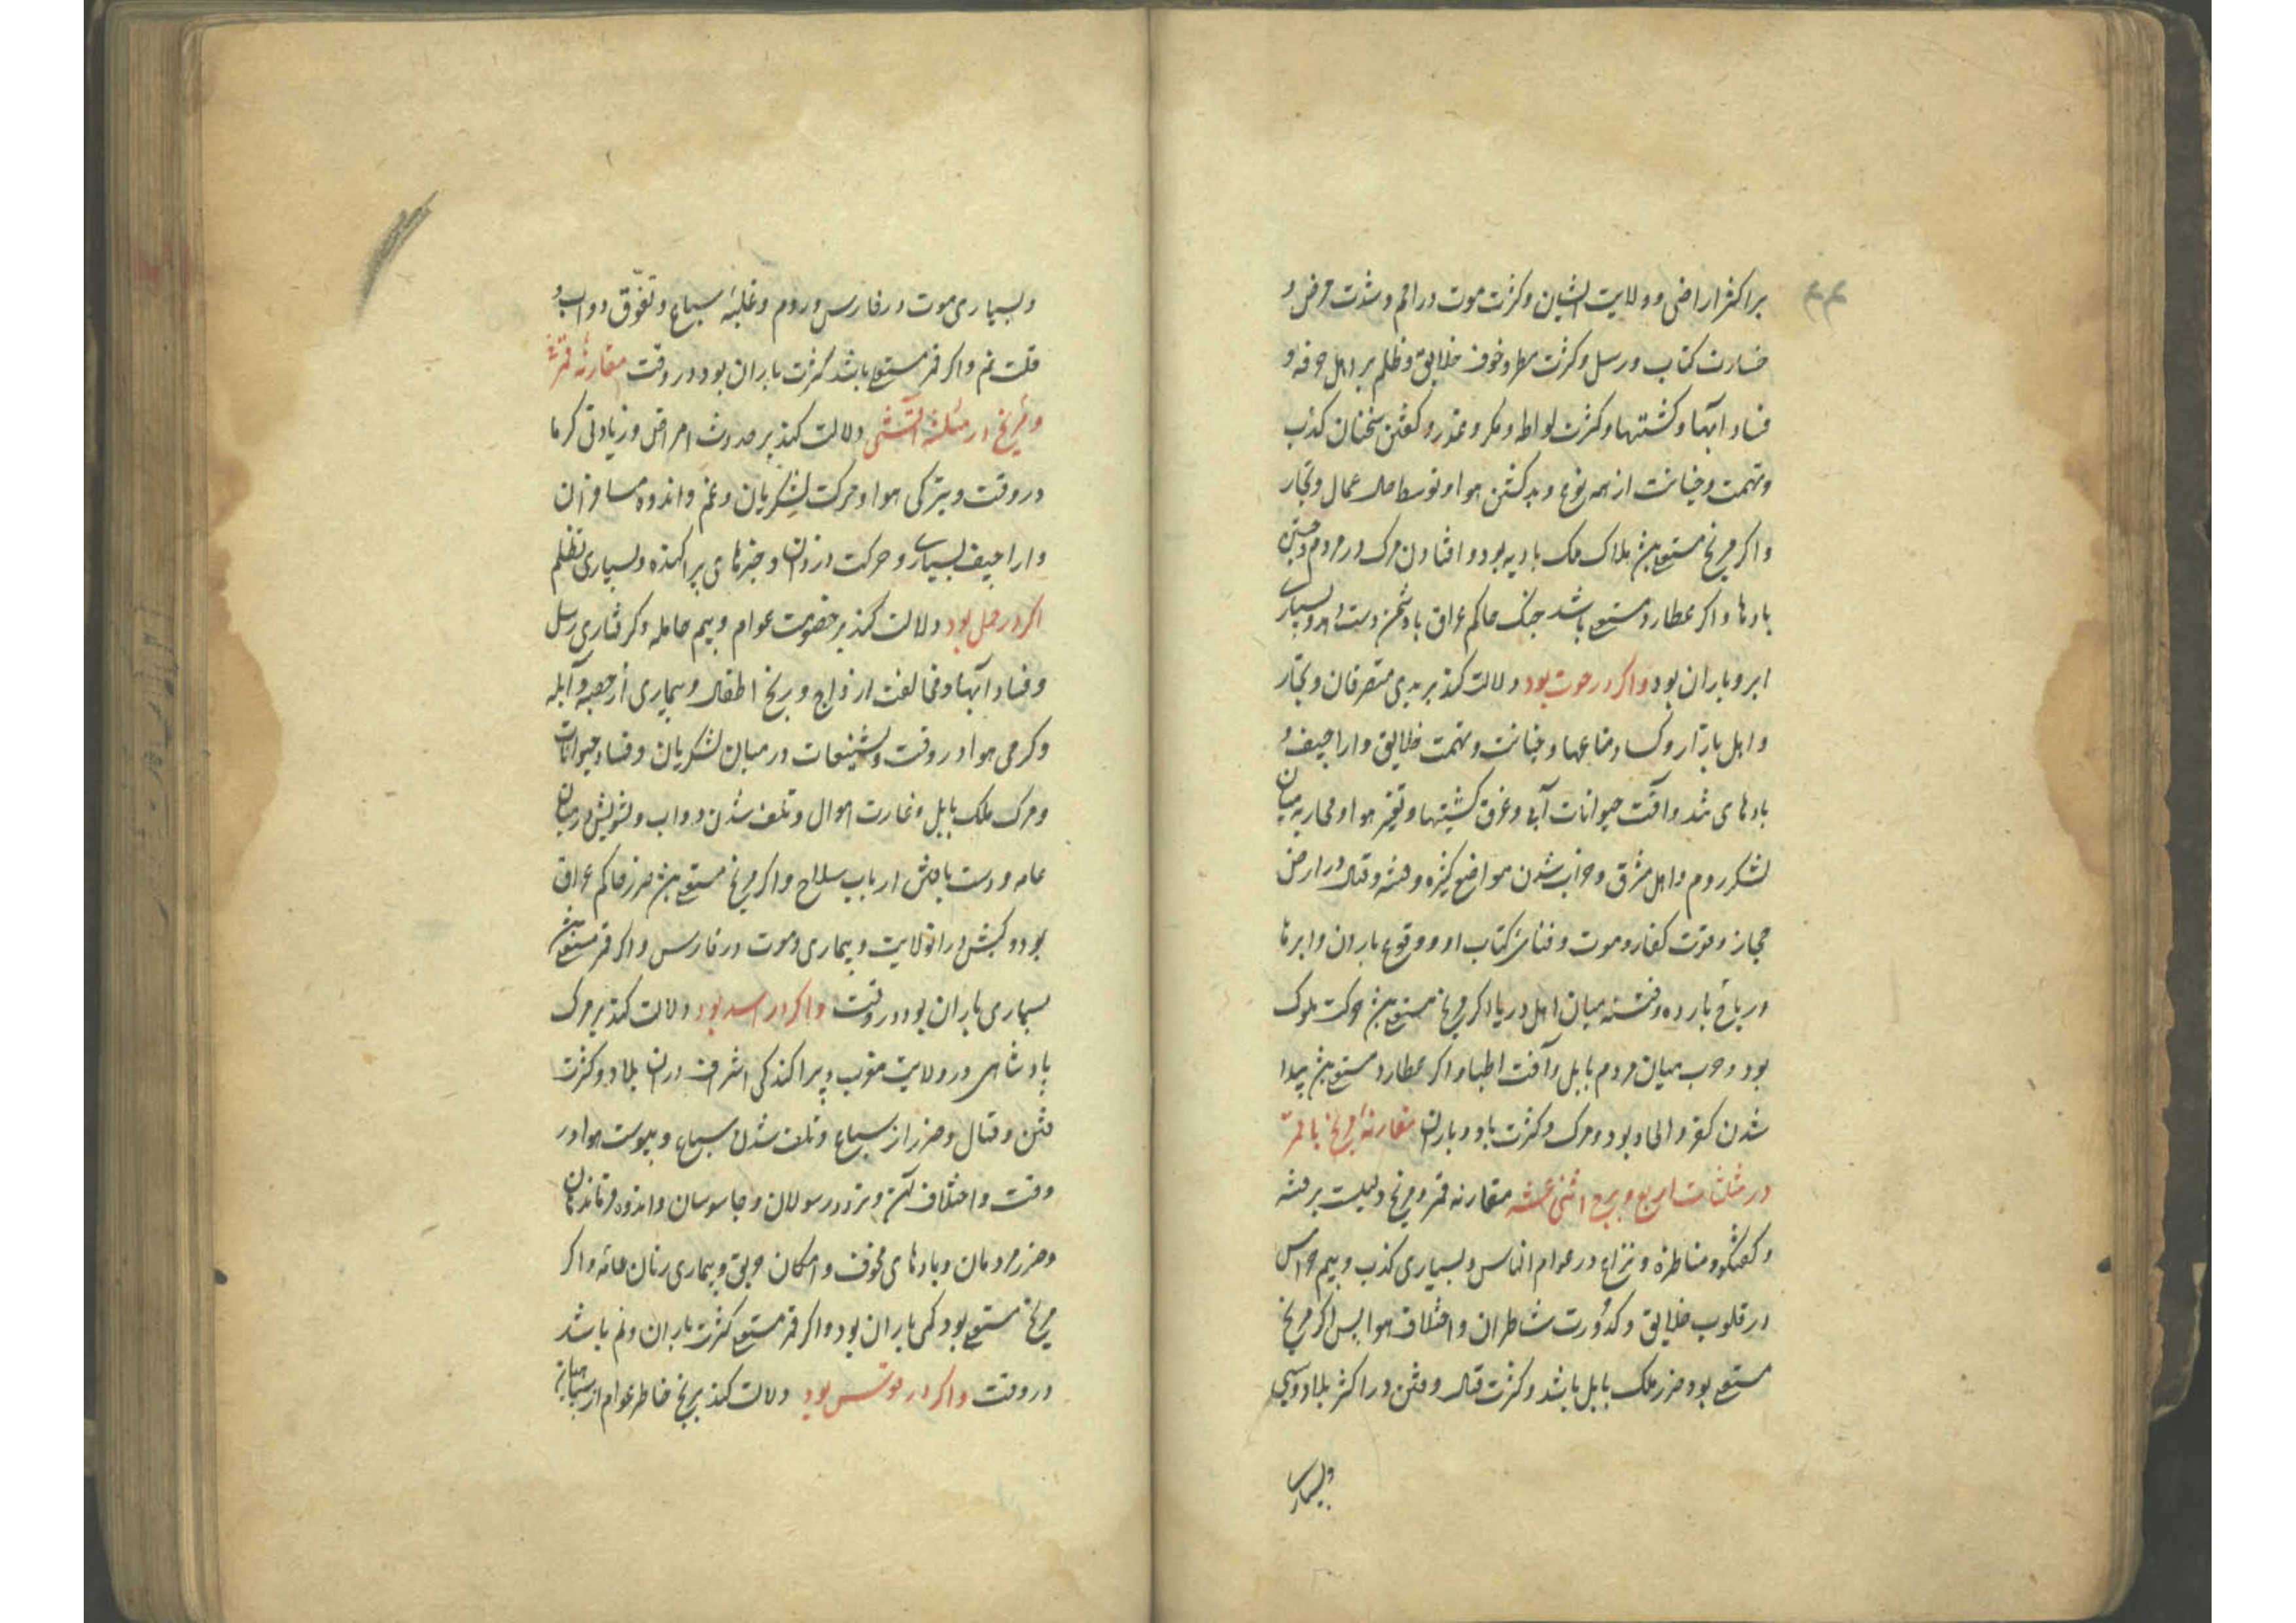 بر اکثر اراضی و ولایت ایشان و کثرت موت در اتم و شدت مرض و
خسارت کتاب و رسل و کثرت مطر و خوف خلایق و ظلم بر اهل حرفه و
فساد آبها و کشتیها و کثرت لواطه و مکر و غدر و گفتن سخنان کذب
و تهمت و خیانت از همه نوع و بد گشتن هوا و توسط حال عمال و تجار
و اکر مریخ مستعلی بود هلاک ملک بادیه بود و افتادن مرک در مردم و جستن
بادها و اکر عطارد مستعلی باشد جنک حاکم عراق با دشمن دست دهد و بسیاری
ابر و باران بود و اکر در حوت بود دلالت کند بر بدی متصرفان و تجار
و اهل بازار و کساد متاعها و خیانت و تهمت خلایق و اراجیف و
بادهای تند و آفت حیوانات آبی و غرق کشتیها و تغیر هوا و محاربه میان
لشکر روم و اهل مشرق و خراب شدن مواضع کثیره و فتنه و قتال در ارض
حجاز و قوت کفار و موت و فنا کتاب او و وقوع باران و ابرها
و ریاح بارده و فتنه میان اهل دریا و اکر مریخ مستعلی حرکت ملوک
بود و حرب میان مردم بابل و آفت اطبا و اکر عطارد مستعلی پیدا
شدن کفر و الحاد بود و مرک و کثرت باد و باران مقارنه مریخ با قمر
در مثلثات اربع و بروج اثنی عشر مقارنه قمر و مریخ دلیلست بر فتنه
و کفتکو و مناظره و نزاع در عوام الناس و بسیاری کذب و بیم و هراس
در قلوب خلایق و کدورت شاطران و اختلاف هوا پس اکر مریخ
مستعلی بود ضرر ملک بابل باشد و کثرت قتال و فتن در اکثر بلاد
و بسیاری
و بسیاری موت در فارس و روم و غلبه سباع و تفرق دواب و
قلت نم و اکر قمر مستعلی باشد کثرت باران بود در وقت مقارنه قمر
و مریخ در مثلثه آتشی دلالت کند بر حدوث امراض و زیادتی کرما
در وقت و تیرکی هوا و حرکت لشکریان و غم و اندوه مسافران
و اراجیف بسیار و حرکت دزدان و خبرهای پراکنده و بسیاری تظلم
اکر در حمل بود دلالت کند بر خصومت عوام و بیم حامله و کرفتاری رسل
و فساد آبها و مخالفت ازواج و رنج اطفال و بیماری از حصبه و آبله
و کرمی هوا در وقت و تشنیعات در میان لشکریان و فساد حیوانات
و مرک ملک بابل و غارت اموال و تلف شدن دواب و تشویش در میان
عامه و دست یافتن ارباب سلاح و اکر مریخ مستعلی ضرر حاکم عراق
بود و در آن ولایت و بیماری و موت در فارس و اکر قمر مستعلی
بسیاری باران بود در وقت و اکر در اسد بود دلالت کند بر مرک
پادشاهی در ولایت مغرب و پراکندکی اشراف در آن بلاد و کثرت
فتن و قتال و ضرر از سباع و تلف شدن سباع و یبوست هوا در
وقت و اختلاف و تردد رسولان و جاسوسان و اندوه
و ضرر مردمان و بادهای مخوف و امکان حریق و بیماری زنان عامه و اکر
مریخ مستعلی بود کمی باران بود و اکر قمر مستعلی کثرت باران و نم باشد
در وقت و اکر در قوس بود دلالت کند بر رنج خاطر عوام از